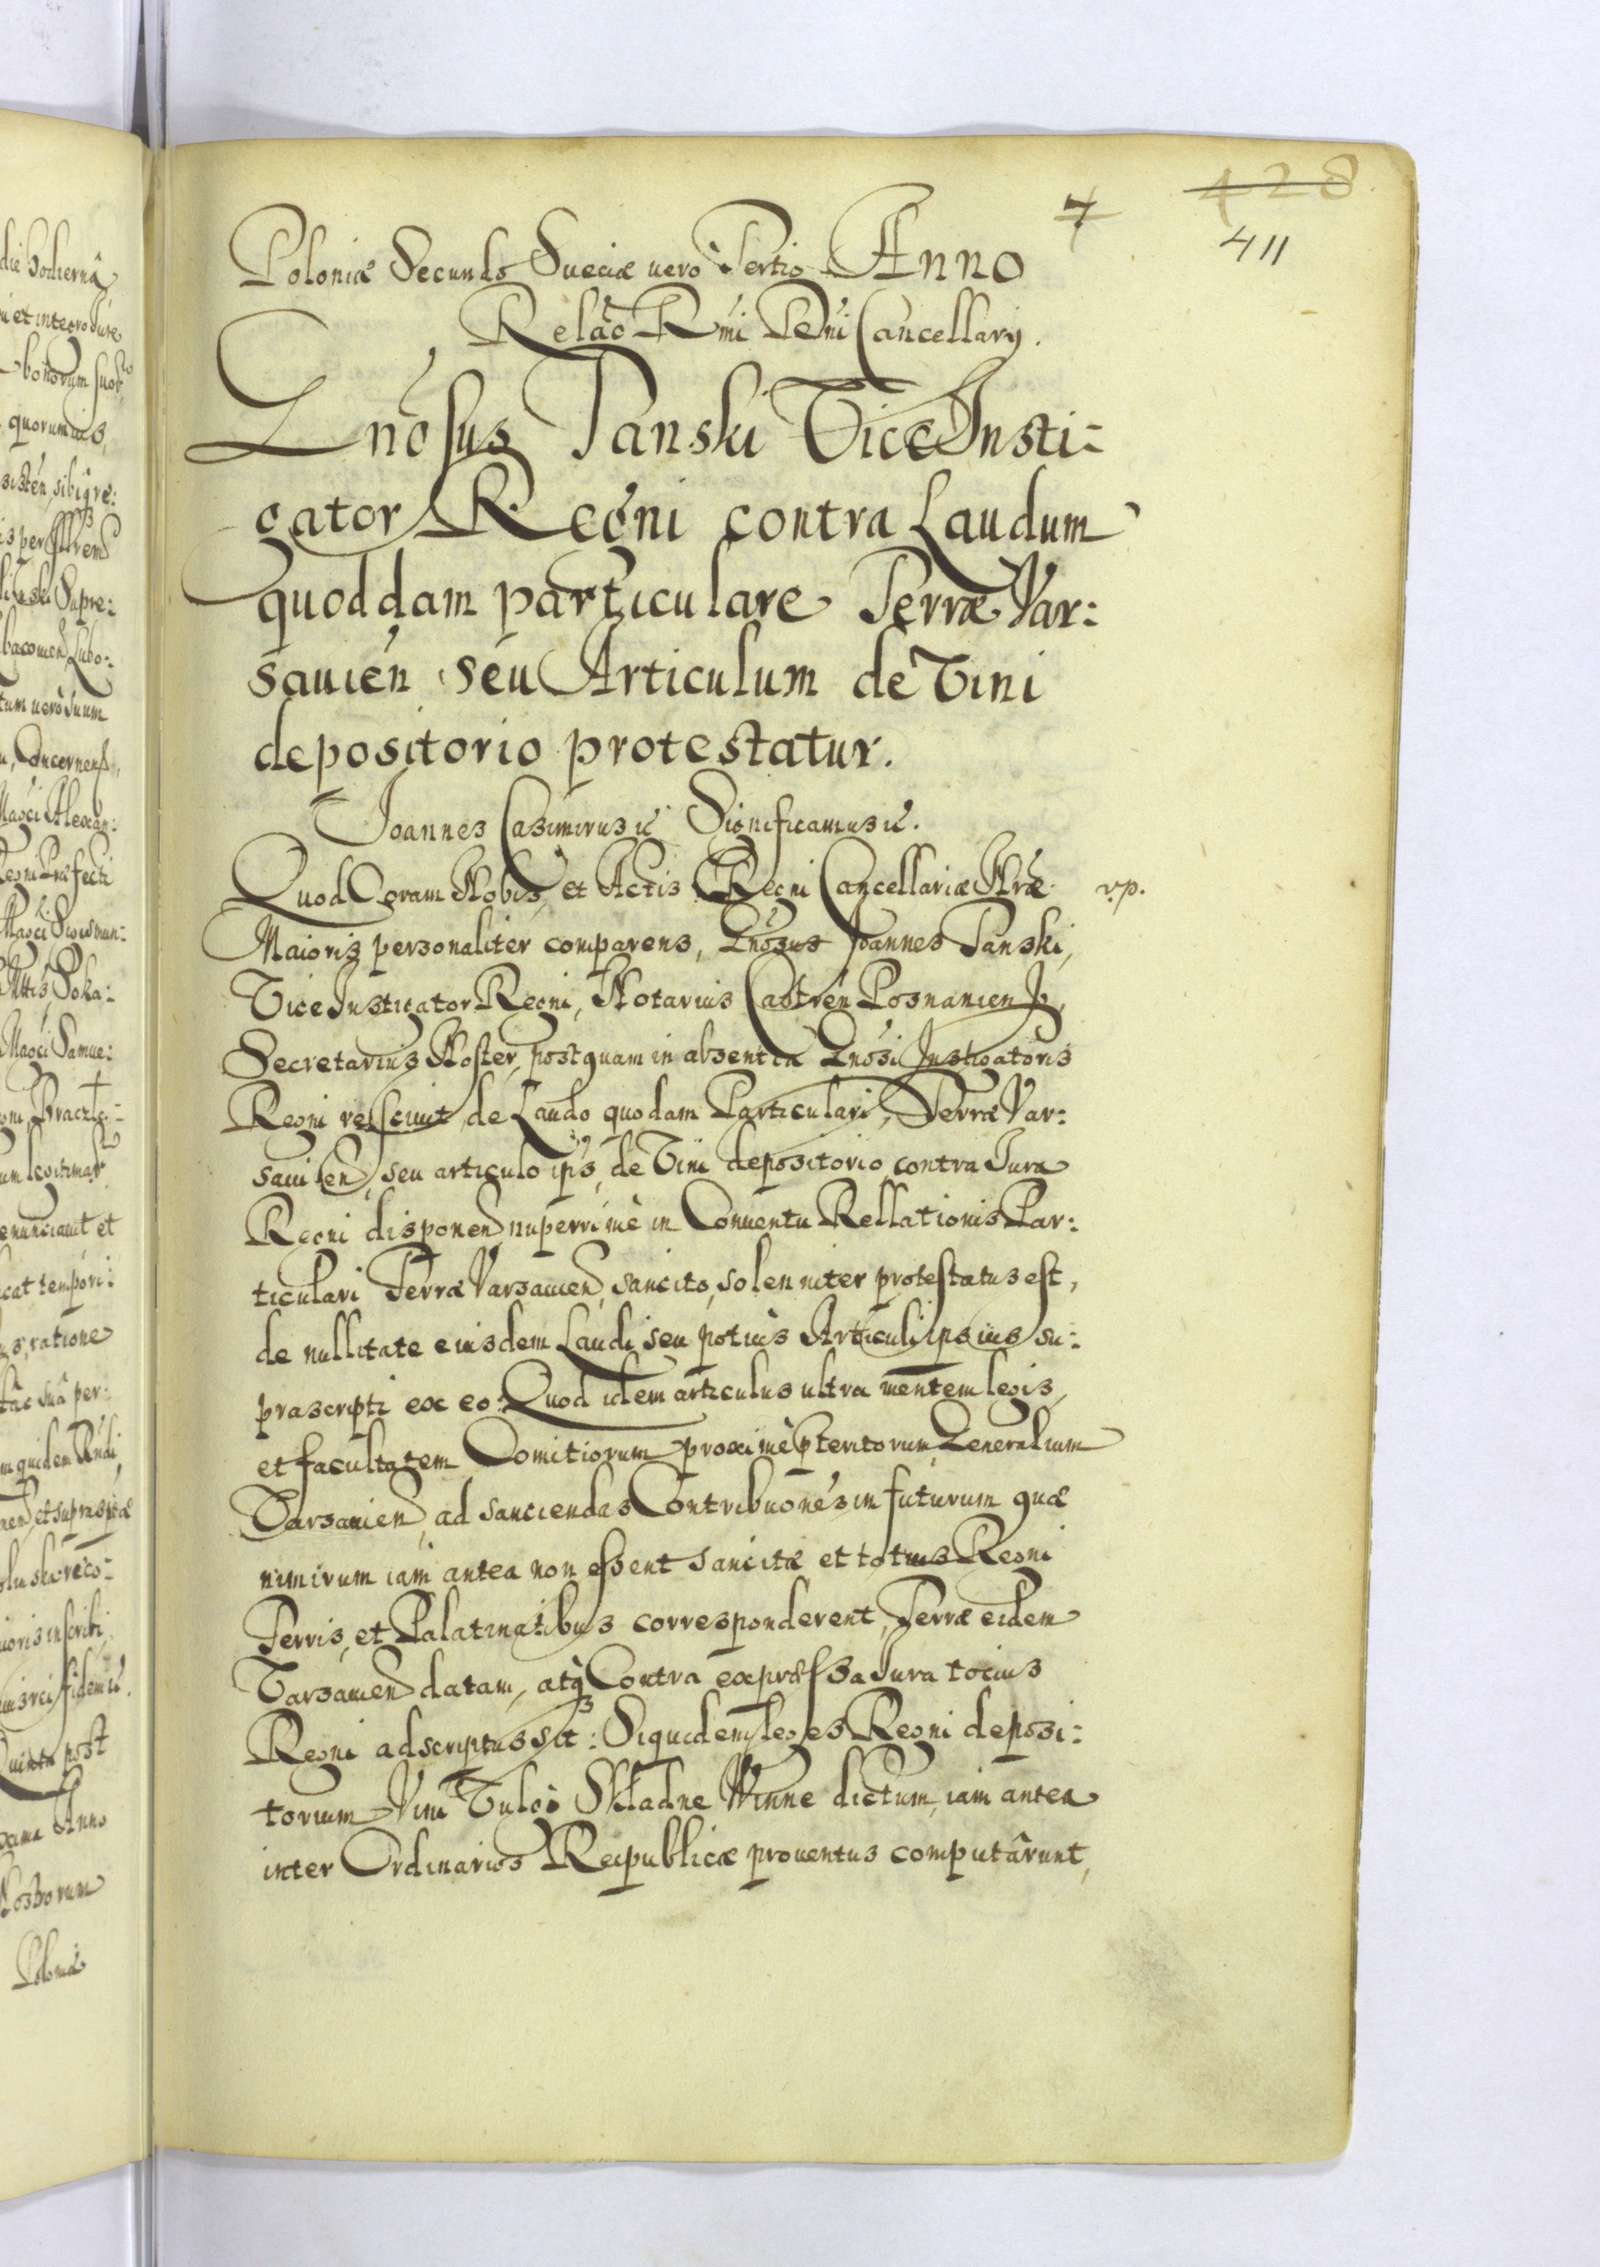 7
428
411
Poloniæ Secundo Sueciæ vero Tertio Anno
Relão Rmi Dni Cancellarij.
Gnosus Tanski Vice Insti:
gator Regni contra Laudum
quoddam particulare Terræ Var:
savien seu Articulum de Vini
depositorio protestatur.
Joannes Casimirus &c Significamus &c.
Quod Coram Nobis, et Actis Regni Cancellariæ Nræ vp.
Maioris personaliter comparens, Gnosus Joannes Tanski,
Vice Instigator Regni, Notarius Castren Posnanien,
Secretarius Noster, postquam in absentia Gnosi Instigatoris
Regni rescivit de Laudo quodam Particulari, Terræ Var:
savien, seu articulo ips, de Vini depositorio contra Iura
Regni disponen nuperrimè in Conventu Rellationis Par:
ticulari Terræ Varsavien, sancito, solenniter protestatus est,
de nullitate eiusdem Laudi seu potiùs Articuli ipsius su:
prascripti ex eo: Quod idem articulus ultra mentem legis,
et facultatem Comitiorum proximè pteritorum, Generalium
Varsavien, ad sanciendas Contribuones in futurum quæ
nimirum iam antea non essent sancitæ et totius Regni
Terris, et Palatinatibus corresponderent, Terræ eidem
Varsavien datam, atq Contra expressa Iura tocius
Regni adscriptus sit: Siquidem leges Regni deposi:
torium Vini Vulgò Składne Winne dictum, iam antea
inter Ordinarios Reipublicæ proventus computârunt,
die hodierna
et integro Iure
bonorum suor
quorumvis
sisten, sibiq re:
is per
Supre:
Lubo:
tum verò suum
Concernen,
Magci Alexan:
Regni Præfecti
Magci Sigismun:
Soka:
Magci Samue:
Bracl:
um legitimar
enunciavit et
cat tempori:
us, ratione
tâc suâ per:
m quidem
nen et suprasptæ
reco:
ioris inscribi
ius rei fidem &c.
Quinta post
xima Anno
Nostrorum
Poloniæ